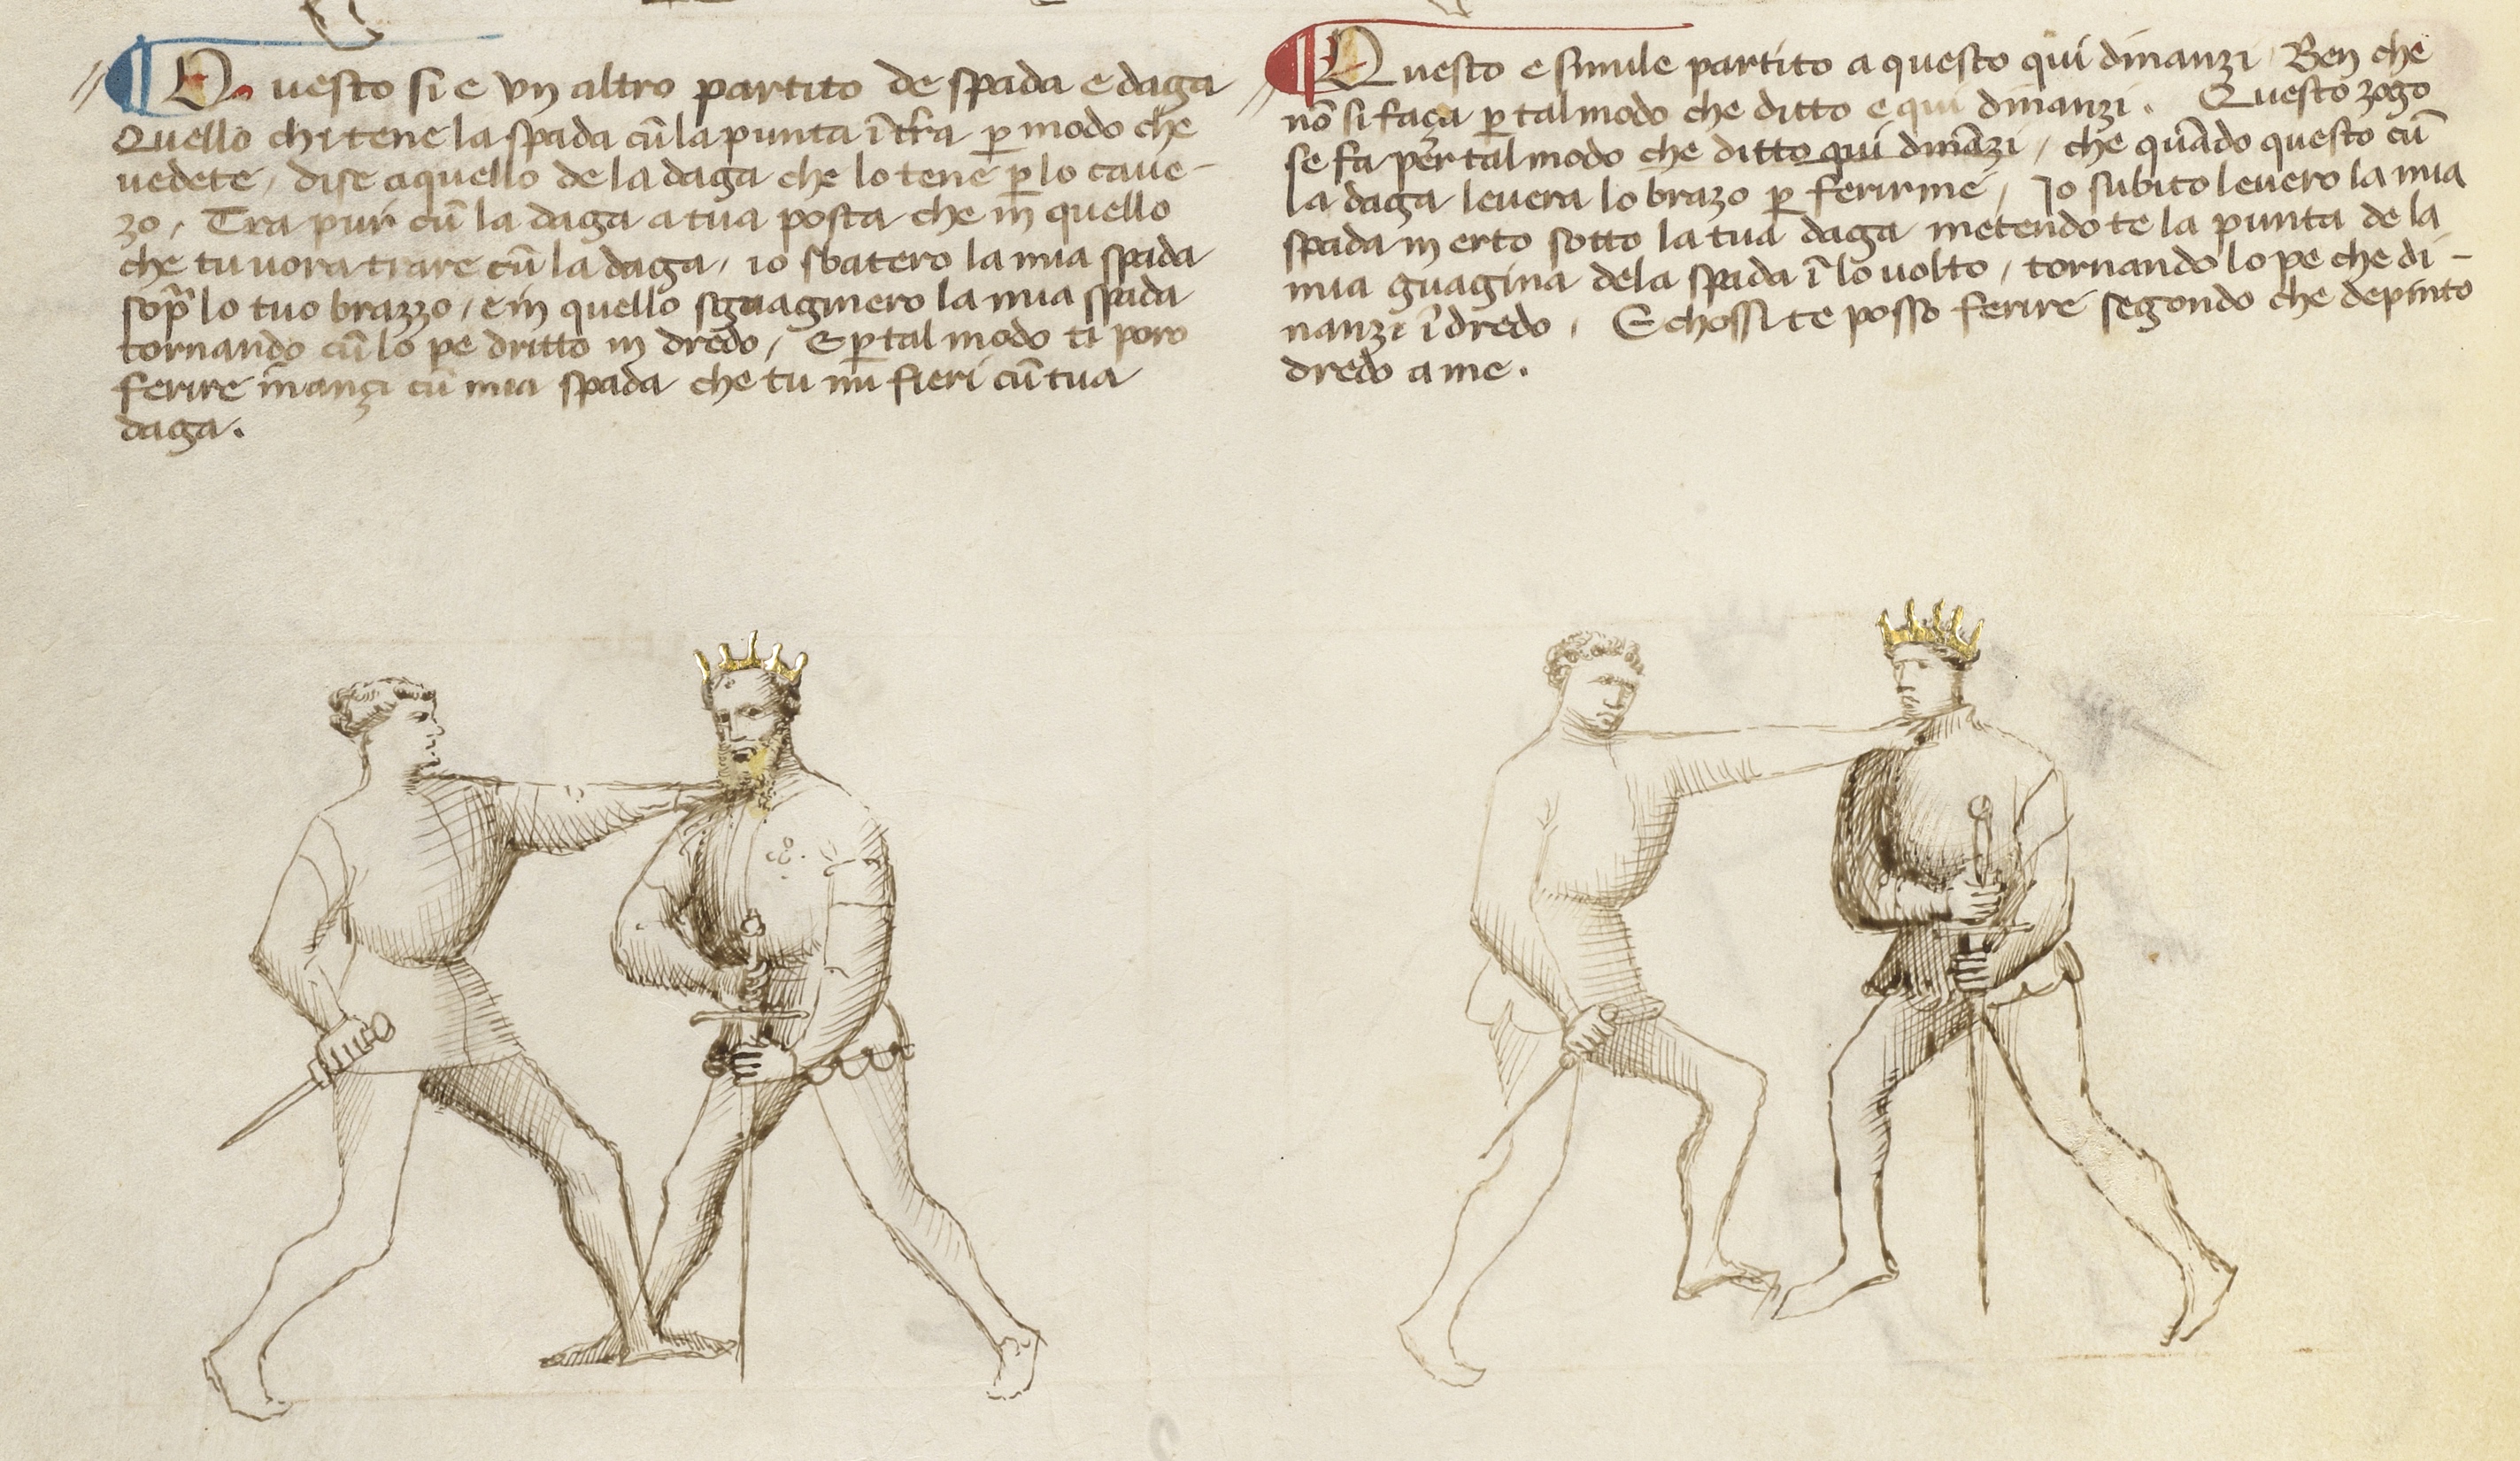 Questo si e vn altro partito de spada e daga
Quello chi tene la spada cū la punta ī t'ra p modo che
uedete, dise a quello de la daga che lo tene p lo caue-
zo, Tra pur cū la daga a tua posta che in quello
che tu uora trare cū la daga, io sbatero la mia spada
sopᵃ lo tuo brazzo, e in quello sguaginero la mia spada
tornando cū lo pe dritto in dredo, E p tal modo ti poro
ferire inanzi cū mia spada che tu mi fieri cū tua
daga.
Questo e simile partito a questo qui dinanzi, Ben che
nō si faça p tal modo che ditto e qui dinanzi. Questo zogo
se fa per tal modo che ditto qui dināzi, che quādo questo cū
la daga leuera lo brazo p ferirme, Io subito leuero la mia
spada in erto sotto la tua daga metendo te la punta de la
mia guagina dela spada ī lo uolto, tornando lo pe che di-
nanzi ī dredo, E chossi te posso ferire segondo che depinto
dredo a me.